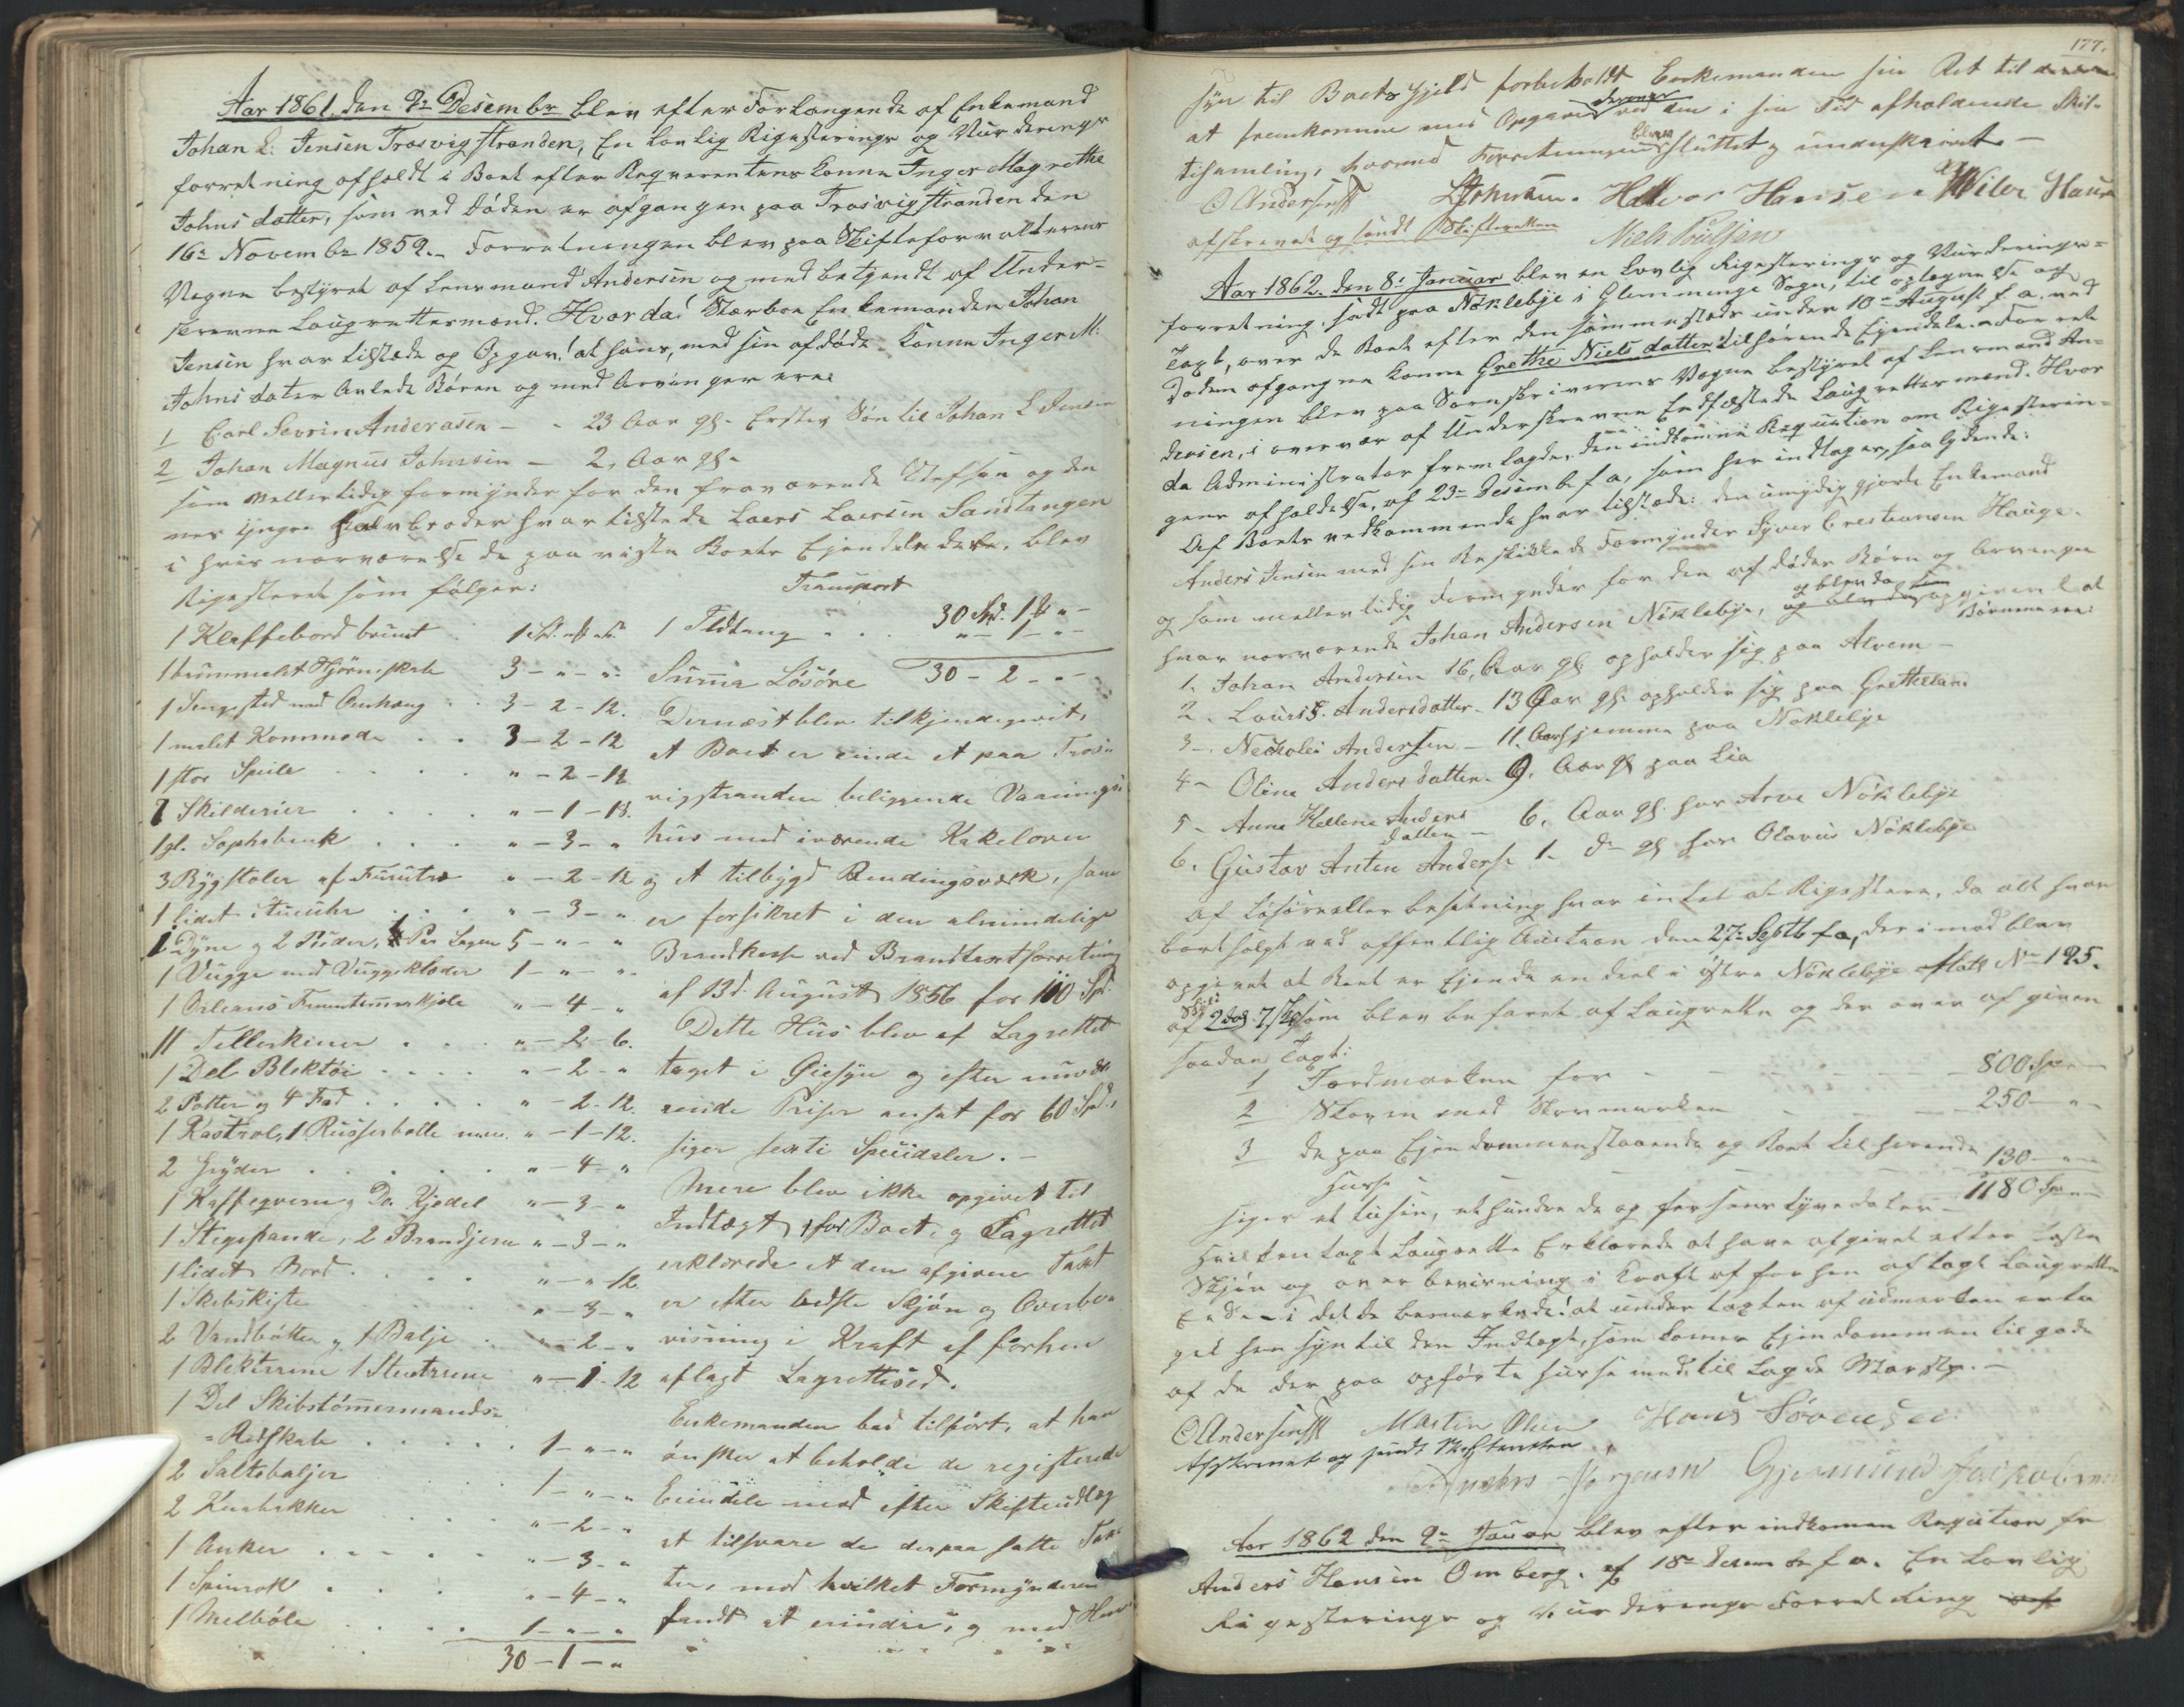 Aar 1861. den 9de Desembr blev efter Forlangende af Enkemand
Johan L. Jensen Trosvigstranden, En Lovlig Rigesterings og Vurderings
forretning afholdt i Boet efter Reqverentens Konne Inger Magrethe
Johnsdatter, som ved Døden er afgangen paa Trosvigstranden den
16de Novembr 1859. Forretningen blev paa Skifteforvalterens
Vegne bestyret af Lensmand Andersen og med betjendt af Under-
skrevne Laugrettesmænd. Hvorda! Stærboe Enkemanden Johan
Jensen hvar tilstæde og Opgav! at hans, med sin afdøde Konne Inger M:
Johnsdater Avlede Børen og med Arvinger ere:
1 Carl Sevrin Anderasen - 23 Aar gl. Erster Søn til Johan L Jensen
2 Johan Magnus Johnsen - 2, Aar gl.
som mellertidig formynder for den fraværende Stefsøn og den
nes yngre Halvbroder hvar tilstede Laers Laersen Sandtangen
i hvis nærværelse de paa viste Boets Ejendele, blev
Rigesteret som følger:
1 Klaffebord brunt 1 Spd. " "
1 brunmalet Hjørneskab 3 - " - "
1 Sengested med Omhæng 3 - 2 - 12.
1 malet Kommode . . 3 - 2 - 12
1 stor Speile . . . " - 2 - 12
7 Skilderier . . . " - 1 - 18.
1 gl. Sophabenk . . . " - 3 - "
3 Rygstoler af Furutræ " - 2 - 12
1 lidet Stueuhr . . " - 3 - "
1 Dyne og 2 Puder, 1 Par Lagen 5 - " - "
1 Vugge med Vuggeklæder 1 - " - "
1 Orleans Fruentemmerkjole " - 4 - "
11 Tellerkener . . . " - 2 - 6.
1 Del Bliktøi . . . " - 2 - "
2 Potter og 4 Fad . . . " - 2 - 12.
1 Kastrol, 1 Russerbolle " - 1 - 12.
2 Gryder . . . . " - 4 - "
1 Kaffeqvern, Do Kjedel " - 3 - "
1 Stegepande, 2 Brandjern " - 3 - "
1 lidet Bord . . . " - " 12
1 Skibskiste " - 3 - "
2 Vandbøtter og 1 Balje . " - 2 - "
1 Blekterrine 1 Stenterrine " - 1 - 12
1 Del Skibstømmermands-
-Redskab . . . . . 1 - " - "
2 Saltebaljer 1 - " - "
2 Knabakker " - 2 - "
1 Anker . . . . . " - 3 - "
1 Spinrok . . . " - 4 - "
1 Melbøle . . . . 1 - " - "
30 - 1 - "
Transport
30 Spd. 1 " -
1 Ildtang . . . " - 1 - "
Summa Løsøre 30 - 2 - "
Dernæst blev tilkjendegivet,
at Boet er eiende et paa Tros-
vigstranden beliggende Vaanings
huus med iværende Kakelovn
og et tilbygd Bendingsværk, som
er forsikret i den almindelige
Brandkasse ved Brandtaxtforretning
af 13d. August 1856 for 110 Spd.
Dette Huus blev af Lagrettet
taget i Øiesyn og efter nuvæ
rende Priser ansat for 60 Spd.,
siger sexti Speciedaler. -
Mere blev ikke opgivet til
Indtægt for Boet, og Lagrettet
erklærede at den afgivne Taxt
er efter bedste Skjøn og Overbe-
viisning i Kraft af forhen
aflagt Lagrettesed.
Enkemanden bad tilført, at han
ønsker at beholde de registerede
Eiendele mod efter Skifteudlæg
at tilsvare de derpaa satte Tax-
ter, mod hvilket Formynderen
fandt at erindre, og med Hen-
177.
syn til Boets Gjeld forbeholdt Enkemanden sin Ret til
at fremkomme med Opgave derover ved den i sin Tid afholdende Skif-
tesamling, hvormed Forretningen blev sluttet og underskrevet. -
O Andersen LJohnsen. Halvor Hansen Wiler Hauge
afskrevet og sendt Skifteretten Niels Poulsen
Aar 1862. den 8de Januar blev en Lovlig Rigesterings og Vurderings-
forretning, sadt paa Nøklebye i Glemminge Sogn, til optegnelse og
Taxt, over de Boet efter den sammesteds under 10de August f. a. ved
Døden afgangne Konne Grethe Nielsdatter tilhørende Ejendele. Forret
ningen blev paa Sorenskriverens Vegne bestyret af Lensmand An-
dersen, i overvær af Underskrevne Eedfæstede Laugrettesmænd. Hvor
da Administrator fremlagde, den indkomne Reqvition om Rigesterin-
gens afholdelse, af 23de Desemb f a, som her indtages, saalydende:
Af Boets vedkommende hvar tilstæde: den umydiggjorte Enkemand
Anders Jensen med sin Beskikkede Formynder Syver Crestiansen Hauge.
og som mellertidig Formynder for den afdødes Børn og Arvinger
hvar nærværende Johan Andersen Nøklebye, og blev da opgivet at
Børnene ere:
1. Johan Andersen 16, Aar gl opholder sig paa Alvem -
2. Lauris. Andersdatter. 13 Aar gl. opholder sig paa Grettelund
3. Neckolei Andersen - 11. Aar hjemme paa Nøklebye
4 - Oline Andersdatter. 9. Aar gl paa Lia
5 - Anne Hellene Anders
datter - 6. Aar gl. hos Arve Nøklebye
6. Gustav Anton Anders. 1. d- gl hos Olavus Nøklebye
Af Løsøre eller besætning hvar intet at Rigestere, da alt hvar
bortsolgt ved offentlig Auction den 27de Septb f a, der i mod blev
opgivet at Boet er Ejende en deel i østre Nøklebye Matr No 125.
af Skyld 2 Dol. 7 Skl som blev befaret af Laugrette og der over afgiven
saadan Taxt:
1 Jordmarken for - - - 800 Spd -
2 Skoven med Skovmarken - - 250 - " -
3 de paa Ejendommen staaende og Boet tilhørende
Husse 130 - " -
1180 Spd -
siger et tusin, et hundrede og firsenstyvedaler -
Hvilken taxt Laugrette Erklærede at have afgivet efter beste
Skjøn og overbevisning i Kraft af forhen aflagt Laugrettes
Eed - i det de bemærkede! at under taxten af udmarken er ta
get hensyn til den Indtægt, som komer Ejendommen til gode
af de der paa opførte Husse med tillagde
OAndersen Martin Olsen Hans Sørensen
Afskrevet og sendt Skifteretten
Anders Jørgensen Gjermund Jackobsen
Aar 1862 den 9de Januar blev efter indkomen Reqvition fr
Anders Hansen Omberg. af 18de Desemb f a. En Lovlig
Rigesterings og Vurderings Forretning